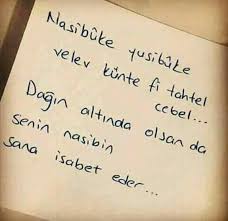 Nasibüke yusibüke
velev künte fi tahtel
cebel...
Dağın altında olsan da
senin nasibin
sana isabet eder...